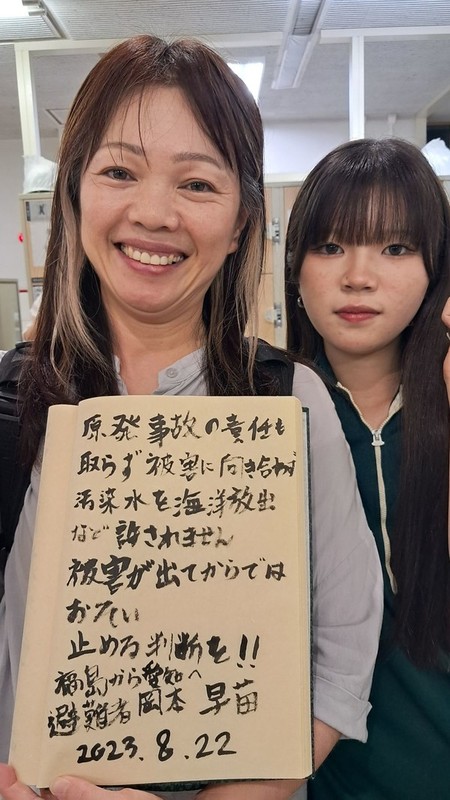 原発事故の責任も
取らず被害に向き合わず
汚染水を海洋放出
など許されません
被害が出てからでは
おそい
止める判断を!!
福島から愛知へ
避難者岡本早苗
2023.8.22